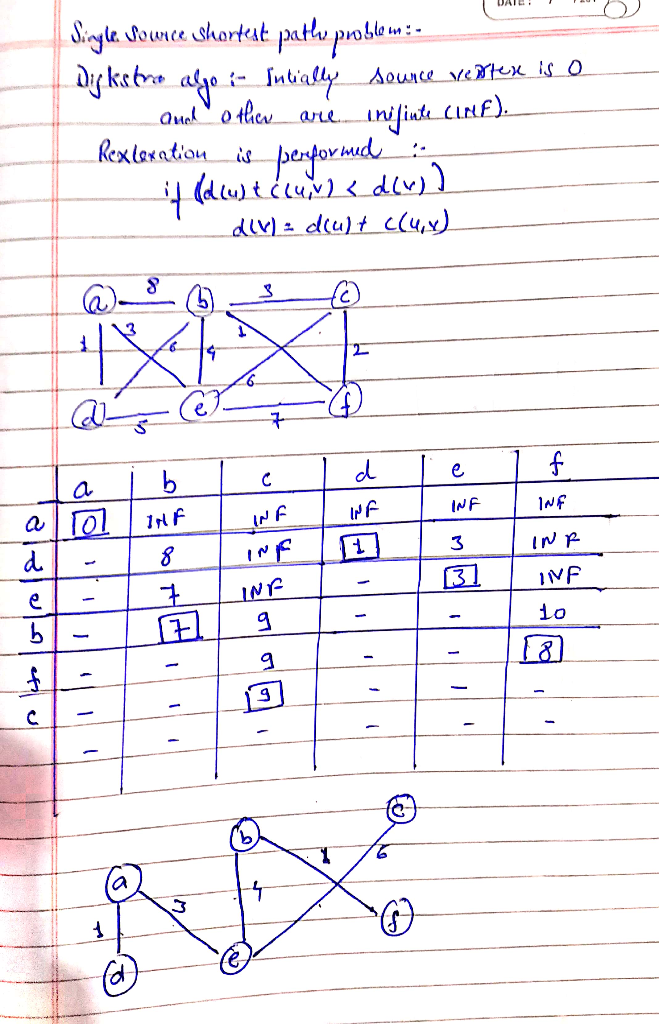 DATE:
Single Source Shortest path problem:-
Dijkstra algo :- Intially source vertex is 0
and other are inifinte (INF).
Rexlexation is performed :-
if (d(u) + c(u,v) < d(v))
d(v) = d(u) + c(u,v)
a 8 b 3 c
1 3 6 4 1 6 2
d 5 e 7 f
a b c d e f
a 0 INF INF INF INF INF
d - 8 INF 1 3 INF
e - 7 INF - 3 INF
b - 7 9 - - 10
f - - 9 - - 8
c - - 9 - - -
- - - - -
c
b
1 6
a 4
3 f
1
d e